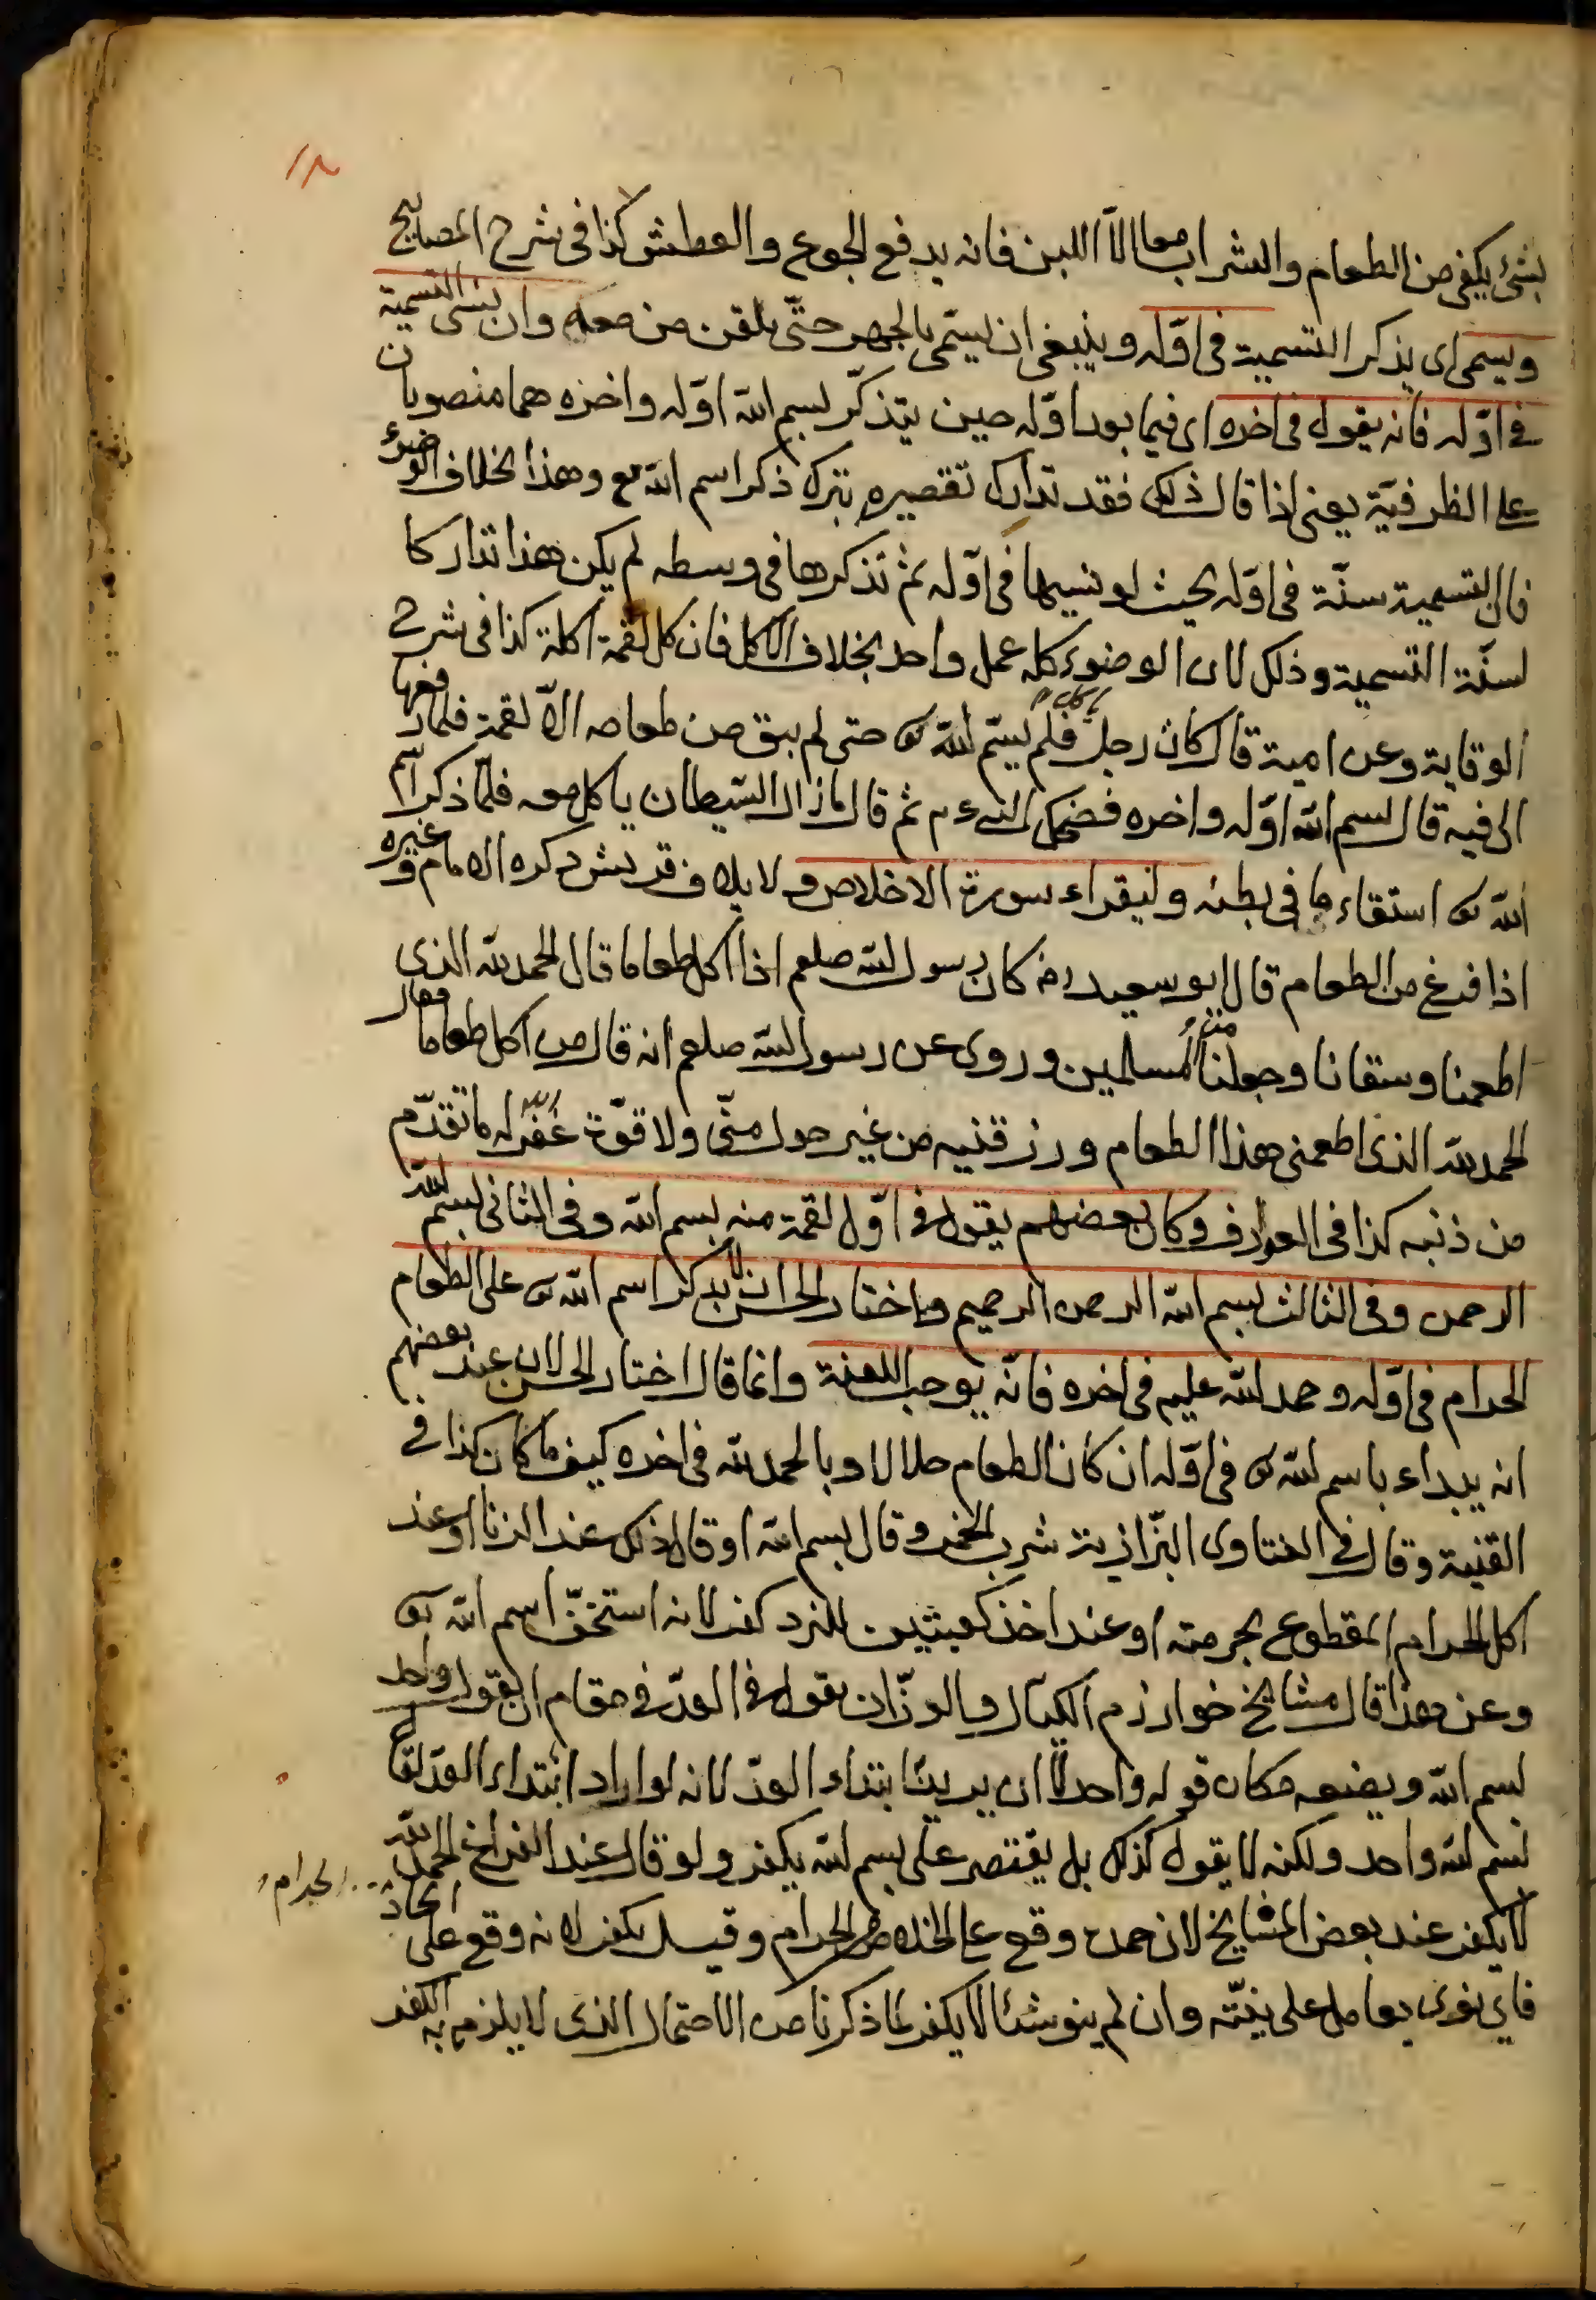 بشئ يكفى من الطعام والشراب معا الا اللبن فانه يدفع الجوع والعطش كذا فى شرح المصابيح
ويسمى اى يذكر التسمية فى اوّله وينبغى ان يسمّى بالجهر حتّى يلقن من معه وان ينسى التسمية
فى اوّله فانه يقول فى اخره اى فيما بعد اوّله حين يتذكّر بسم الله اوّله واخره هما منصوبان
على الظرفيّة يعنى اذا قال ذلك فقد تدارك تقصيره بترك ذكر اسم الله تع وهذا بخلاف الوضوء
فان التسمية سنّة فى اوّله بحيث لو نسيها فى اوّله ثم تذكرها فى وسطه لم يكن هذا تداركا
لسنّة التسمية وذلك لان الوضوء كله عمل واحد بخلاف الاكل فان كل لقمة اكلة كذا فى شرح
الوقاية وعن امية قال كان رجل ياكل فلم يسمّ الله تع حتى لم يبق من طعامه الّا لقمة فلما رفعها
الى فيه قال بسم الله اوّله واخره فضحك النبى ءم ثم قال ما زال الشيطان ياكل معه فلمّا ذكر اسم
الله تع استقاء ما فى بطنه وليقراء سورة الاخلاص ولايلاف قريش ذكره الامام وغيره
اذا فرغ من الطعام قال ابو سعيد رض كان رسول الله صلعم اذا اكل طعاما قال الحمد لله الذى
اطعمنا وسقانا وجعلنا من المسلمين وروى عن رسول الله صلعم انه قال من اكل طعاما فقال
الحمد لله الذى اطعمنى هذا الطعام ورزقنيه من غير حول منّى ولا قوّة غفر الله له ما تقدّم
من ذنبه كذا فى العوارف وكان بعضهم يقول فى اوّل لقمة منه بسم الله وفى الثانى بسم الله
الرحمن وفى الثالث بسم الله الرحمن الرحيم واختار الحسن ان لا يذكر اسم الله تع على الطعام
الحرام فى اوّله وحمد الله عليه فى اخره فانّه يوجب اللعنة وانما قال اختار الحسن لان عند بعضهم
انه يبداء باسم الله تع فى اوّله ان كان الطعام حلالا وبالحمد لله فى اخره كيف ما كان كذا فى
القنية وقال فى الفتاوى البزّازية شرب الخمر وقال بسم الله او قال ذلك عند الزنا او عند
اكل الحرام المقطوع بحرمته او عند اخذ كعبتين للنرد كفر لانه استخفّ اسم الله تع
وعن هذا قال مشايخ خوارزم الكيّال والوزّان يقول فى العدّ فى مقام ان يقول واحد
بسم الله ويضعه مكان قوله واحد لا ان يريد ابتداء العدّ لانه لو اراد ابتداء العدّ لقال
بسم الله واحد ولكنه لا يقول كذلك بل يقتصر على بسم الله يكفر ولو قال عند الفراغ الحمد لله
لا يكفر عند بعض المشايخ لان حمده وقع على الخلاص من الحرام وقيل يكفر لانه وقع على اتخاذ الحرام
فاى نوى يعامل على نيّته وان لم ينو شئا لا يكفر لما ذكرنا من الاحتمال الذى لا يلزم به الكفر